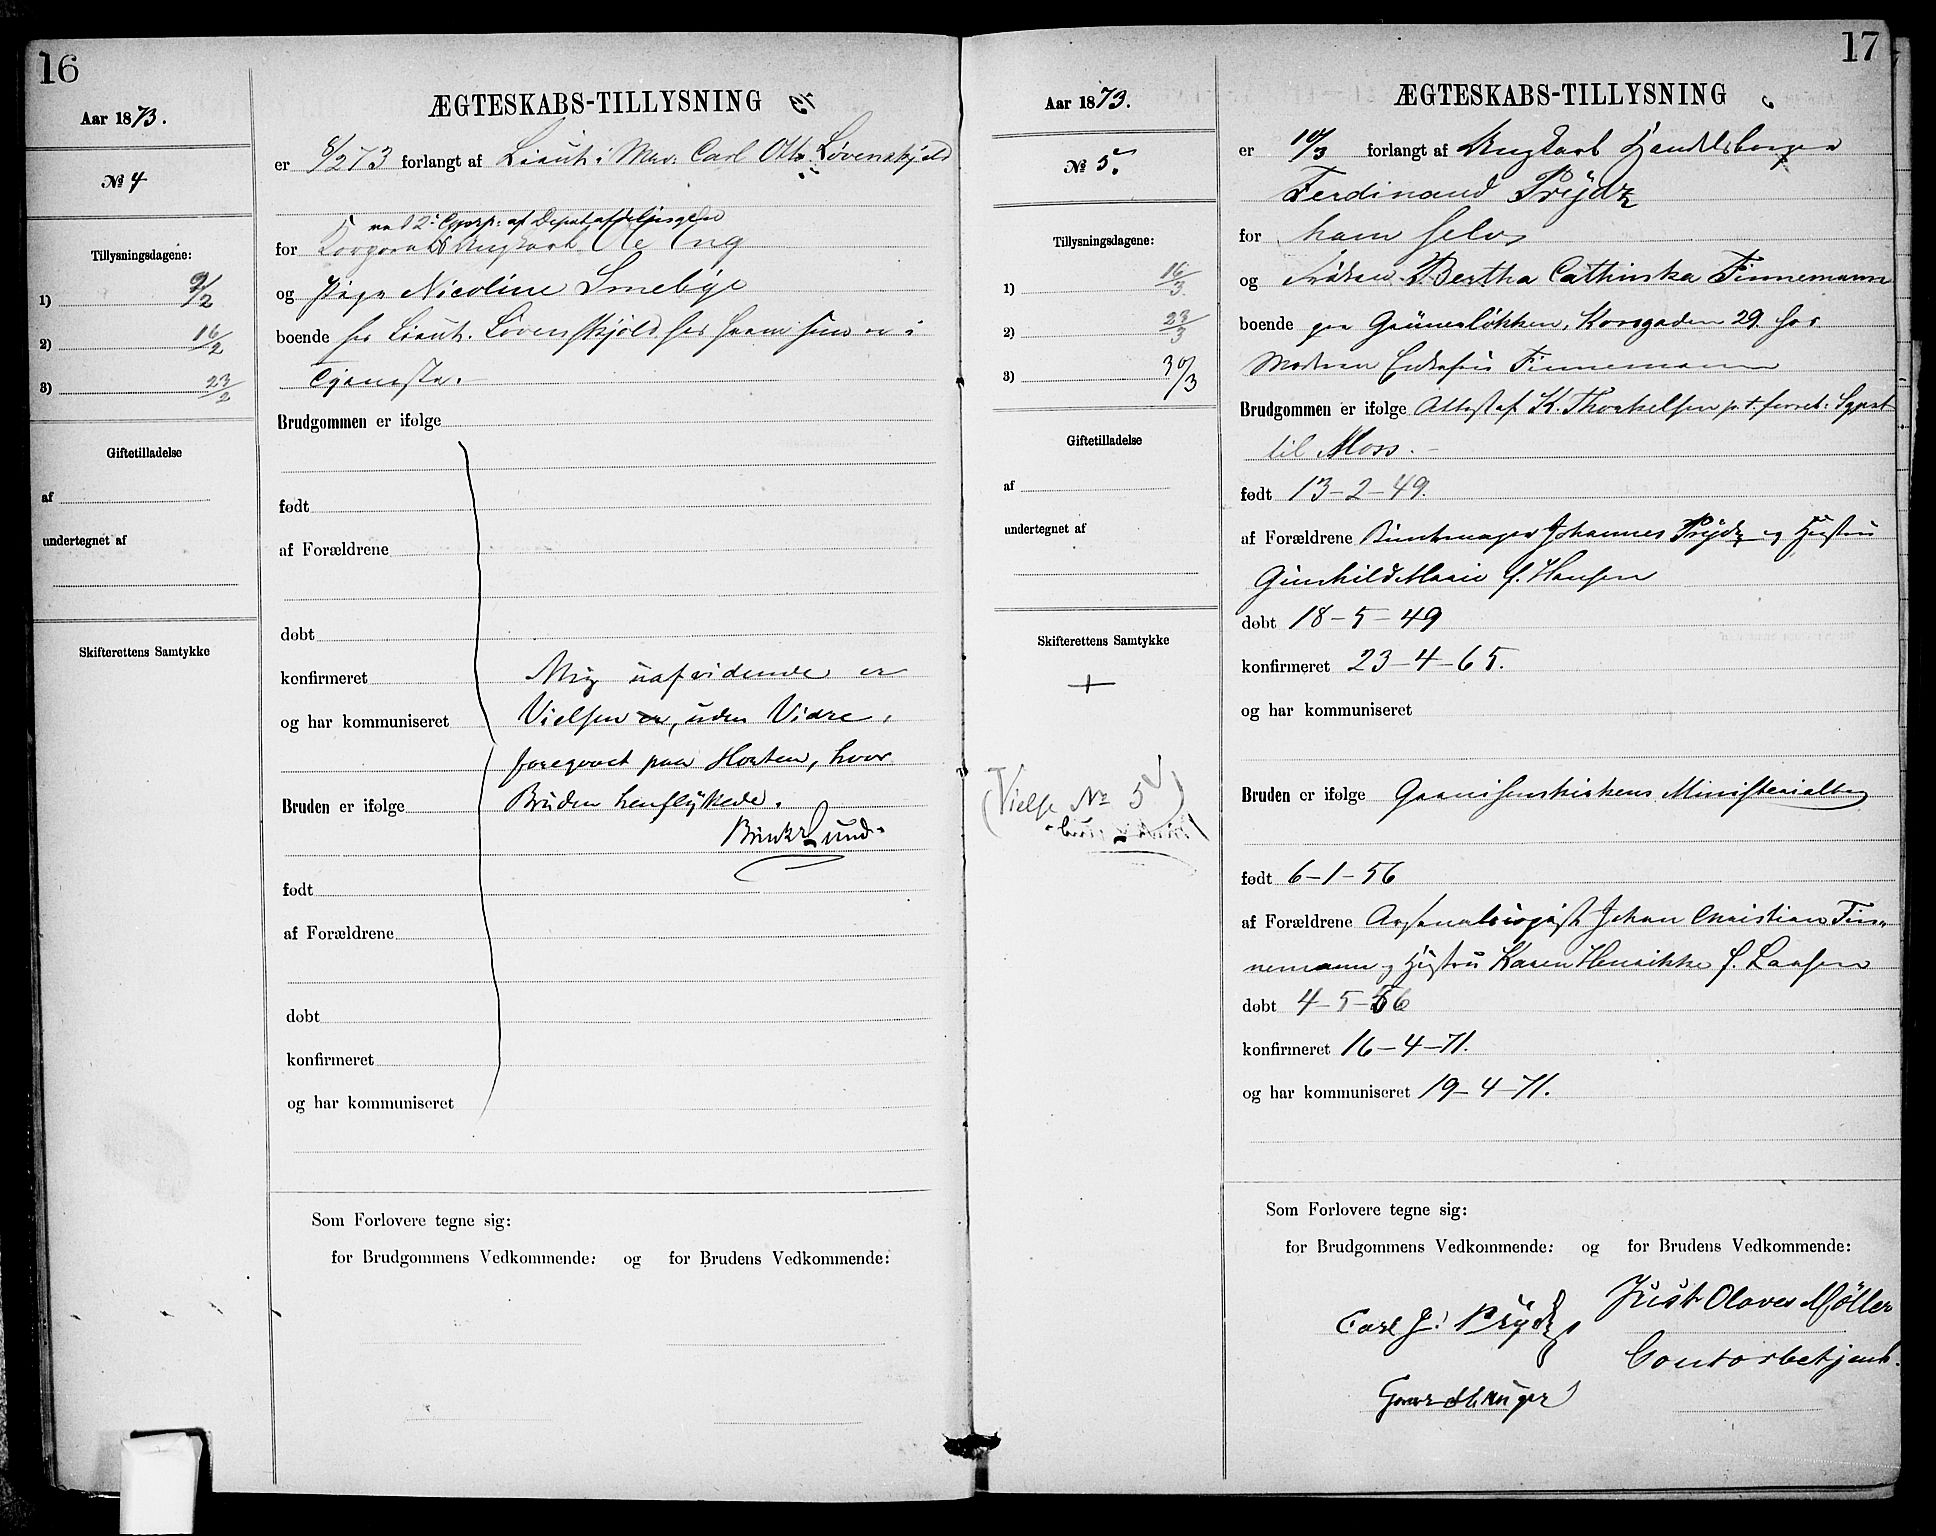 16
Aar 1873.
№ 4
Tillysningsdagene:
1) 9/2
2) 16/2
3) 23/2
Giftetilladelse
af
undertegnet af
Skifterettens Samtykke
ÆGTESKABS-TILLYSNING
er 8/2 73 forlangt af Lieut. i Mar. Carl Otto Løvenskjold
ved 2. Comp. af Depotafdelingen
for Korporal Ungkarl Ole Eng
og Pige Nicoline Smebye
boende hos Lieut. Løvenskjold hos ham som er i
Tjeneste.
Brudgommen er ifølge
født
af Forældrene
døbt
konfirmeret Mig uafvidende er
og har kommuniseret Vielsen er, uden Videre,
foregaaet paa Horten, hvor
Bruden er ifølge Bruden henflyttede.
Brinck Lund
født
af Forældrene
døbt
konfirmeret
og har kommuniseret
Som Forlovere tegne sig:
for Brudgommens Vedkommende: og for Brudens Vedkommende:
17
Aar 1873.
№ 5.
Tillysningsdagene:
1) 16/3
2) 23/3
3) 30/3
Giftetilladelse
af
undertegnet af
Skifterettens Samtykke
+
(Vielse № 5)
ÆGTESKABS-TILLYSNING
er 10/3 forlangt af Ungkarl Handelsborger
Ferdinand Prydz
for ham selv
og Frøken Bertha Cathinka Finnemann
boende paa Grünerløkken, Korsgaden 29 hos
Moderen Enkefru Finnemann
Brudgommen er ifølge Attest af K. Thorkelsen p. t. forret. Sgpst
til Moss.
født 13-2-49.
af Forældrene Buntmager Johannes Prydz og Hustru
Gunhild Marie f. Hansen
døbt 18-5-49
konfirmeret 23-4-65.
og har kommuniseret
Bruden er ifølge Garnisonskirkens Ministerialbog
født 6-1-56
af Forældrene Johan Christian Fin-
nemann og Hustru Karen Henrikke f. Larsen
døbt 4-5-56
konfirmeret 16-4-71.
og har kommuniseret 19-4-71.
Som Forlovere tegne sig:
for Brudgommens Vedkommende: og for Brudens Vedkommende:
Carl J. Prydz Just Olaves Møller
Contorbetjent.